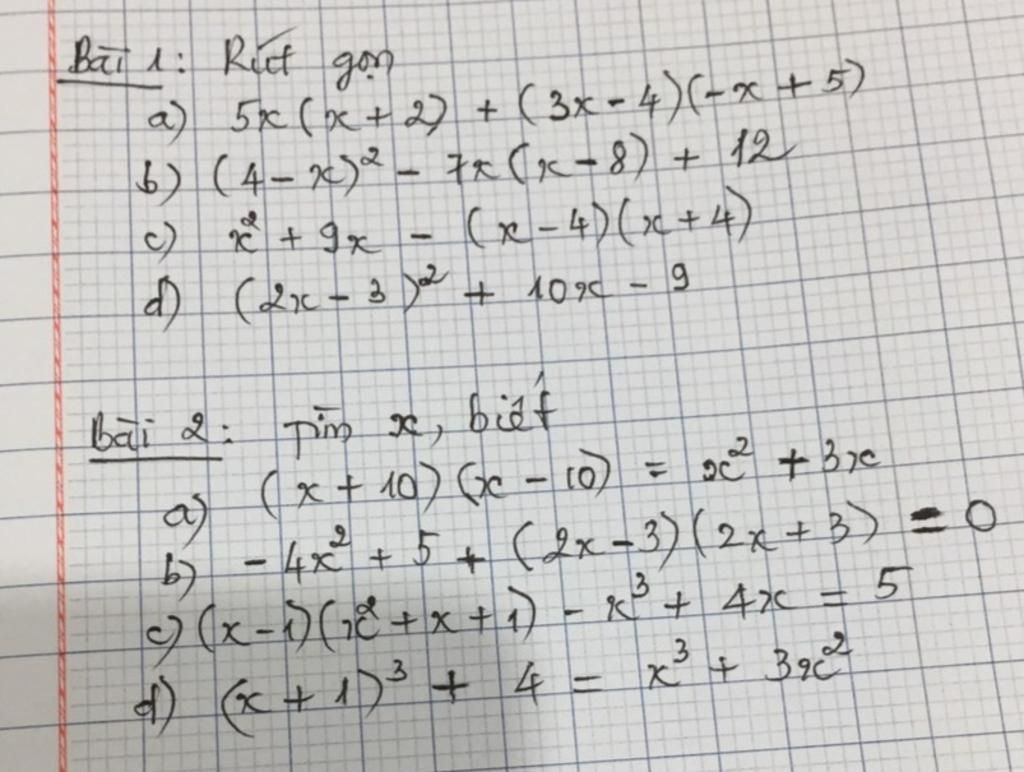 Bài 1: Rút gọn
a) 5x(x+2) + (3x-4)(-x+5)
b) (4-x)² - 7x(x-8) + 12
c) x² + 9x - (x-4)(x+4)
d) (2x-3)² + 10x - 9
Bài 2: Tìm x, biết
a) (x+10)(x-10) = x² + 3x
b) -4x² + 5 + (2x-3)(2x+3) = 0
c) (x-1)(x²+x+1) - x³ + 4x = 5
d) (x+1)³ + 4 = x³ + 3x²